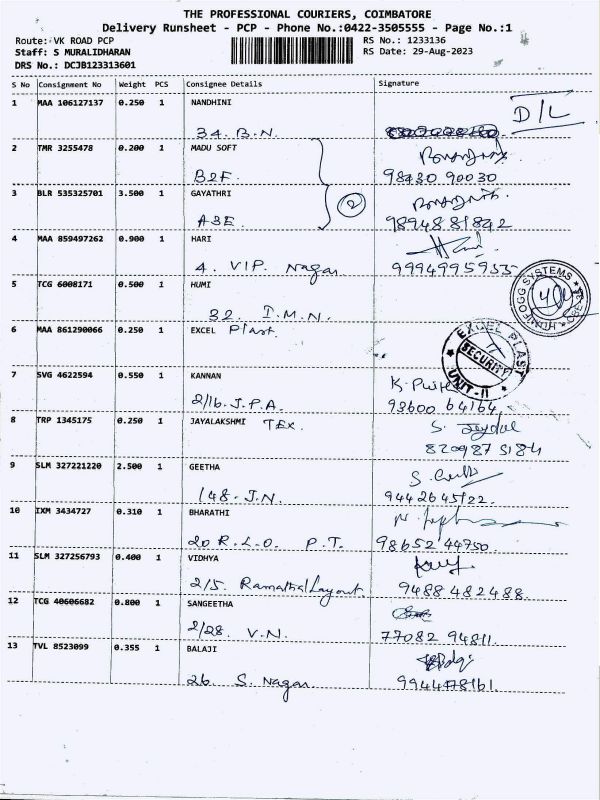 THE PROFESSIONAL COURIERS, COIMBATORE
Delivery Runsheet - PCP - Phone No.:0422-3505555 - Page No.:1
Route: VK ROAD PCP RS No.: 1233136
Staff: S MURALIDHARAN RS Date: 29-Aug-2023
DRS No.: DCJB123313601
S No Consignment No Weight PCS Consignee Details Signature
1 MAA 106127137 0.250 1 NANDHINI
D/L
34. B.N.
2 TMR 3255478 0.200 1 MADU SOFT
B2F. 98430 90030
3 BLR 535325701 3.500 1 GAYATHRI
2
A3E. 98948 81842
4 MAA 859497262 0.900 1 HARI
4. VIP. Nagar 9994995953
5 TCG 6008171 0.500 1 HUMI
32. I.M.N.
SYSTEMS
6 MAA 861290066 0.250 1 EXCEL Plast.
EXCEL PLAST
SECURITY
UNIT-II
7 SVG 4622594 0.550 1 KANNAN
2/16. J.P.A. 93600 64164
8 TRP 1345175 0.250 1 JAYALAKSHMI TEX.
9 SLM 327221220 2.500 1 GEETHA
148. J.N. 9442645122.
10 IXM 3434727 0.310 1 BHARATHI
20 R.L.O P.T. 98652 44750.
11 SLM 327256793 0.400 1 VIDHYA
2/5. Ramathal Layout 9488 482488.
12 TCG 40606682 0.800 1 SANGEETHA
2/28. V.N. 77082 94811.
13 TVL 8523099 0.355 1 BALAJI
26 S. Nagar 9944478161.